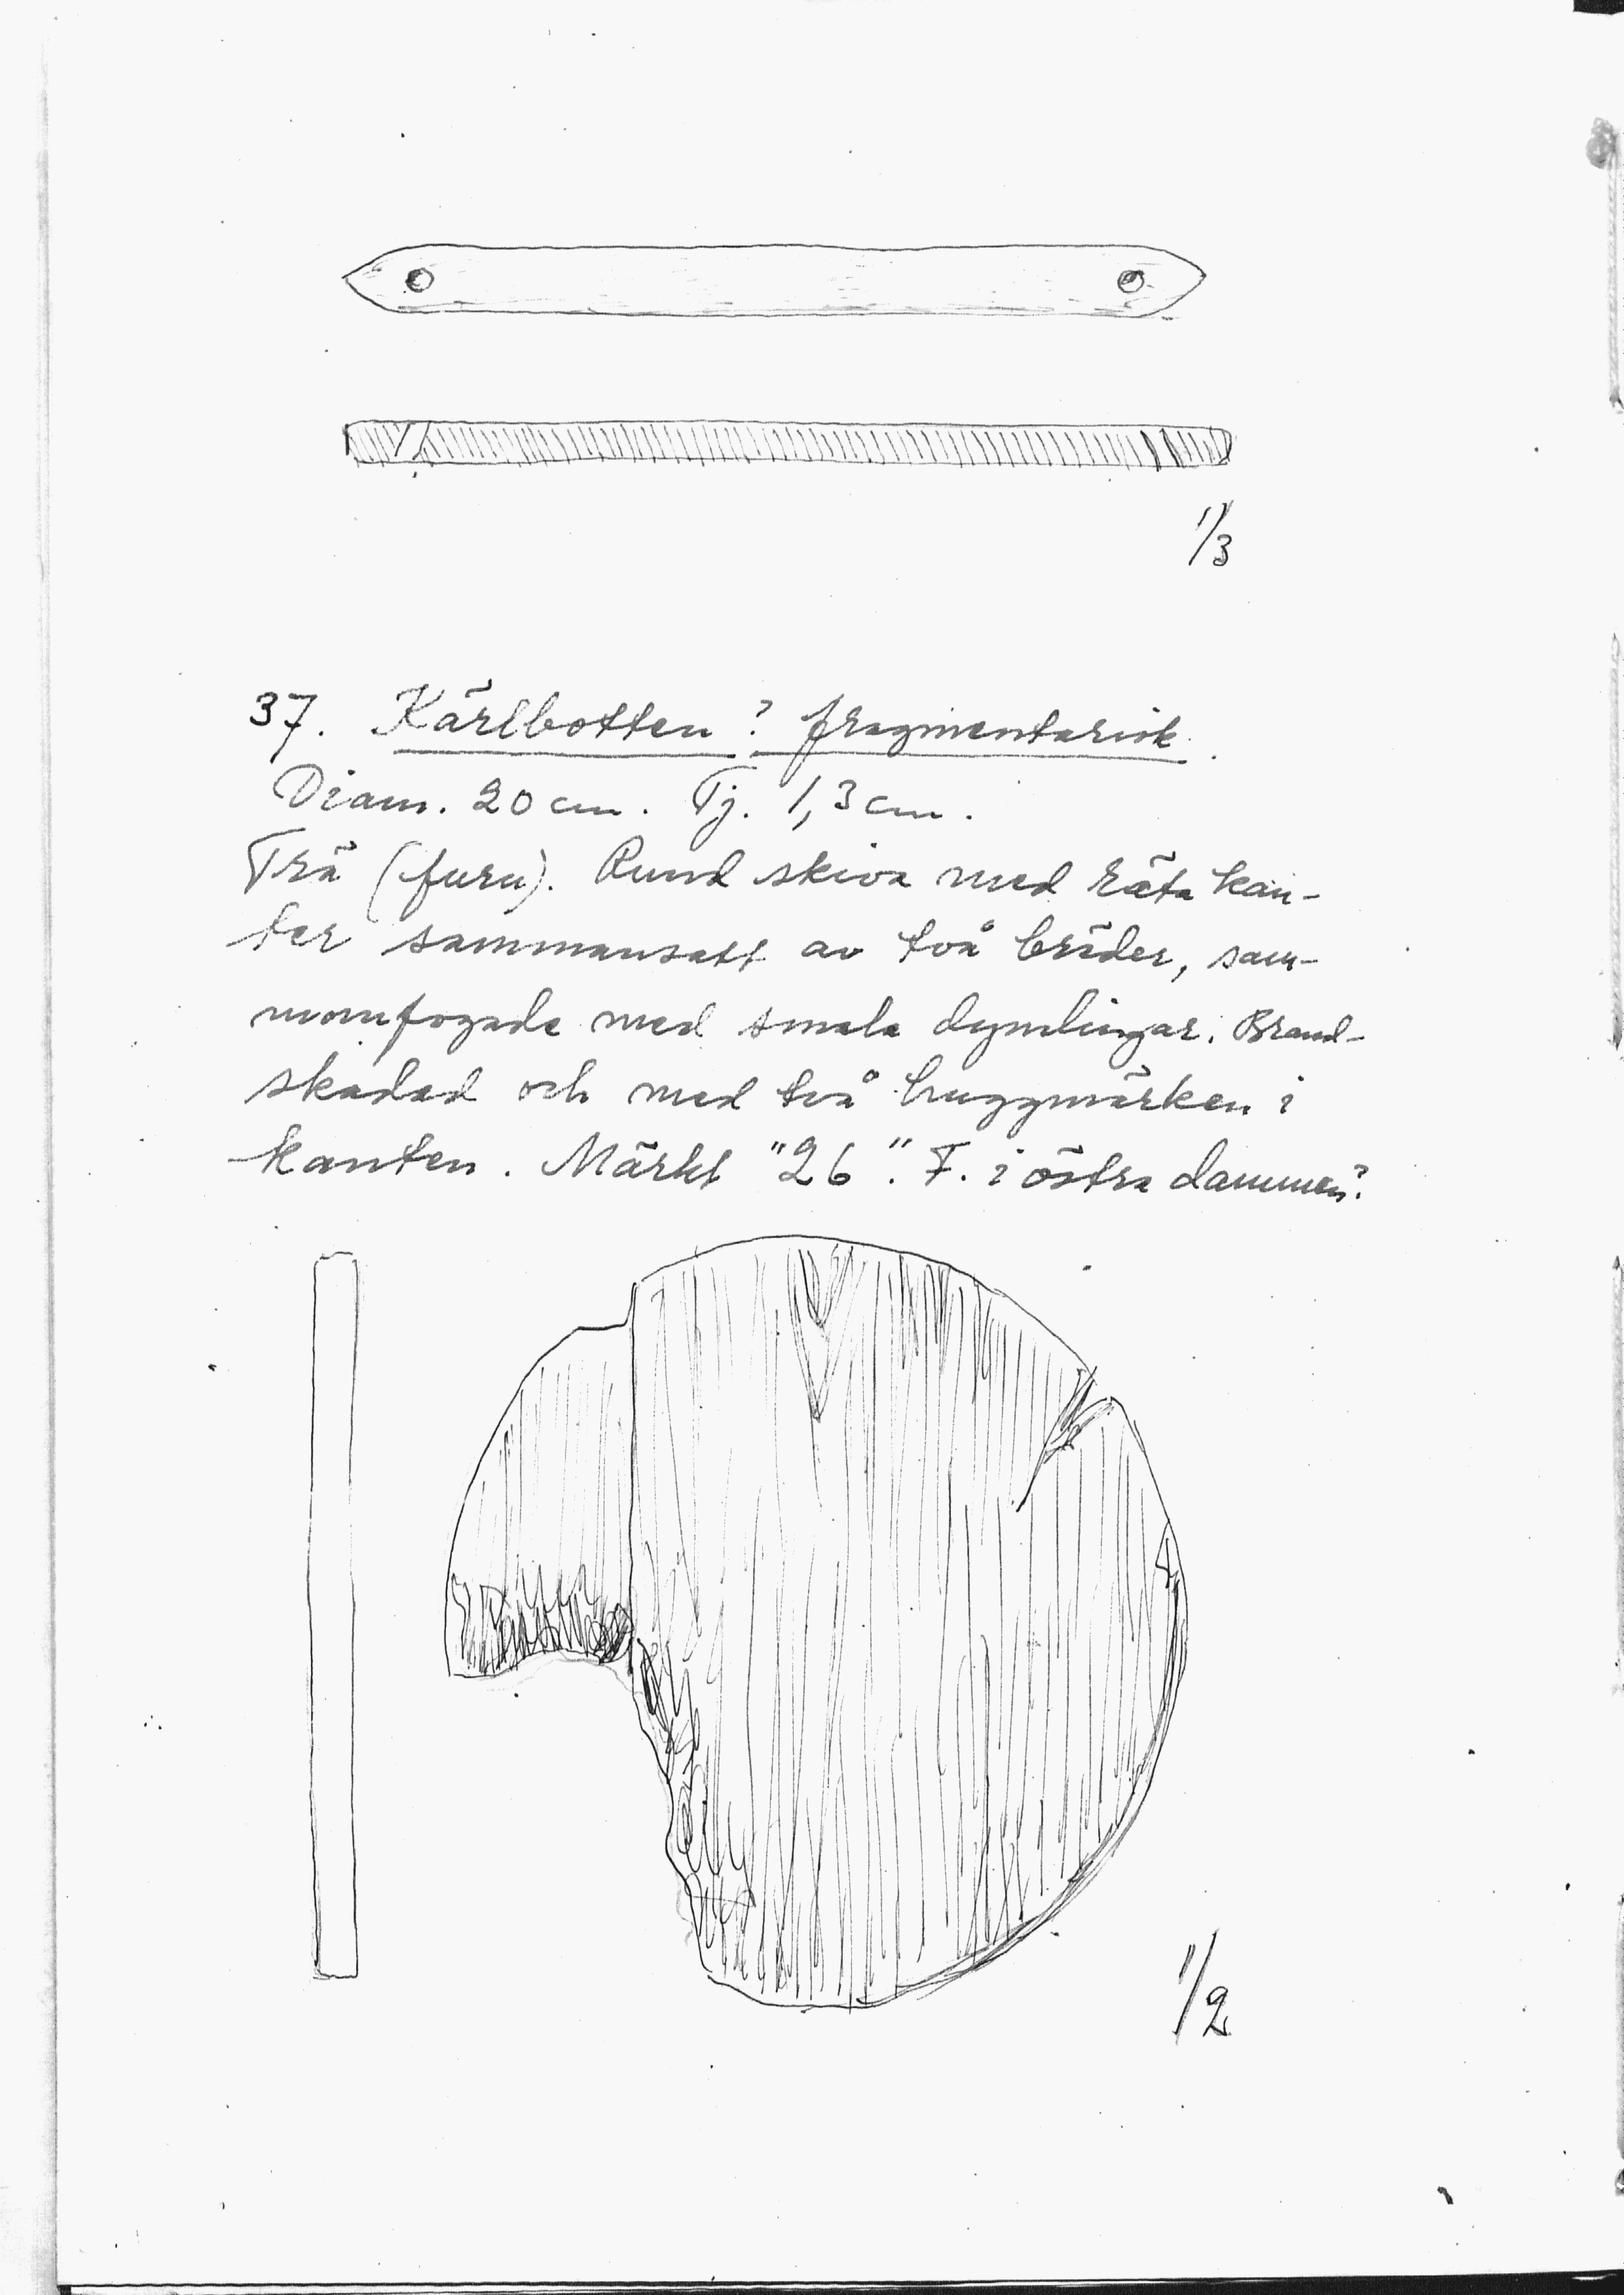 1/3
37. Kärlbotten? fragmentarisk.
Diam. 20 cm. Tj. 1,3 cm.
Trä (furu). Rund skiva med räta kan-
ter sammansatt av två bräder, sam-
manfogade med smala dymlingar. Brand-
skadad och med två huggmärken i
kanten. Märkt "26". F. i östra dammen?
1/2